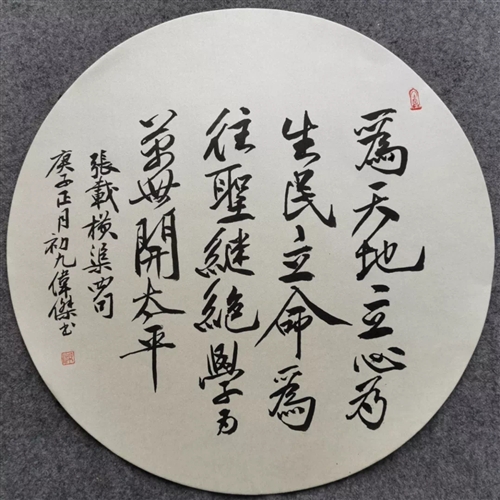 爲天地立心为
生民立命爲
往聖継絶學为
萬世開太平
張載横渠四句
庚子正月初九偉傑书